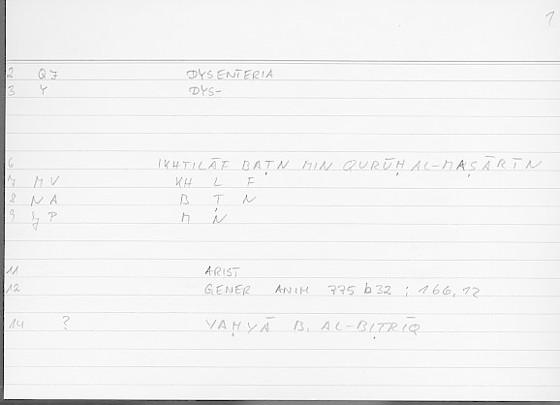 1
2 QJ DYSENTERIA
3 Y DYS-
6 IKHTILĀF BAṬN MIN QURŪḤ AL-MAṢĀRĪN
7 MV KH L F
8 NA B Ṭ N
9 P M N
11 ARIST
12 GENER ANIM 775 b 32 ; 166,12
14 ? YAḤYĀ B. AL-BIṬRĪQ